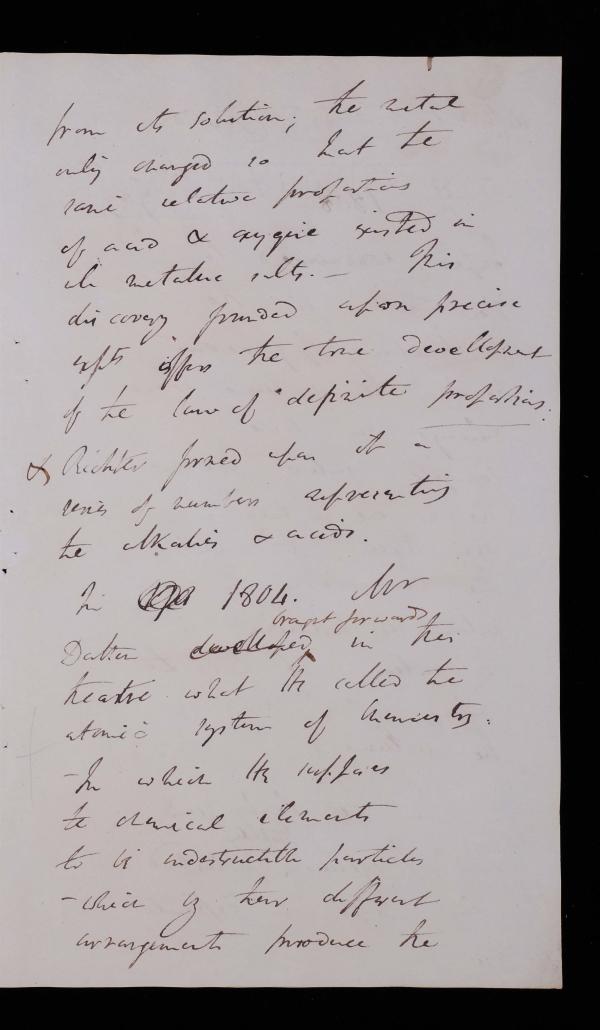 from its solution; the metal
only changed so that the
same relative proportions
of acid & oxygene existed in
all metallic salts. — This
discovery founded upon precise
expts offers the true developement
of the law of definite proportions.
& Richter formed upon it a
series of numbers representing
the alkalies & acids.
In 1804. Mr
brought forwards
Dalton developed in this
theatre what He called the
atomic system of Chemistry.
- In which He supposes
the chemical elements
to be indestructible particles
- which by their different
arrangements produce the